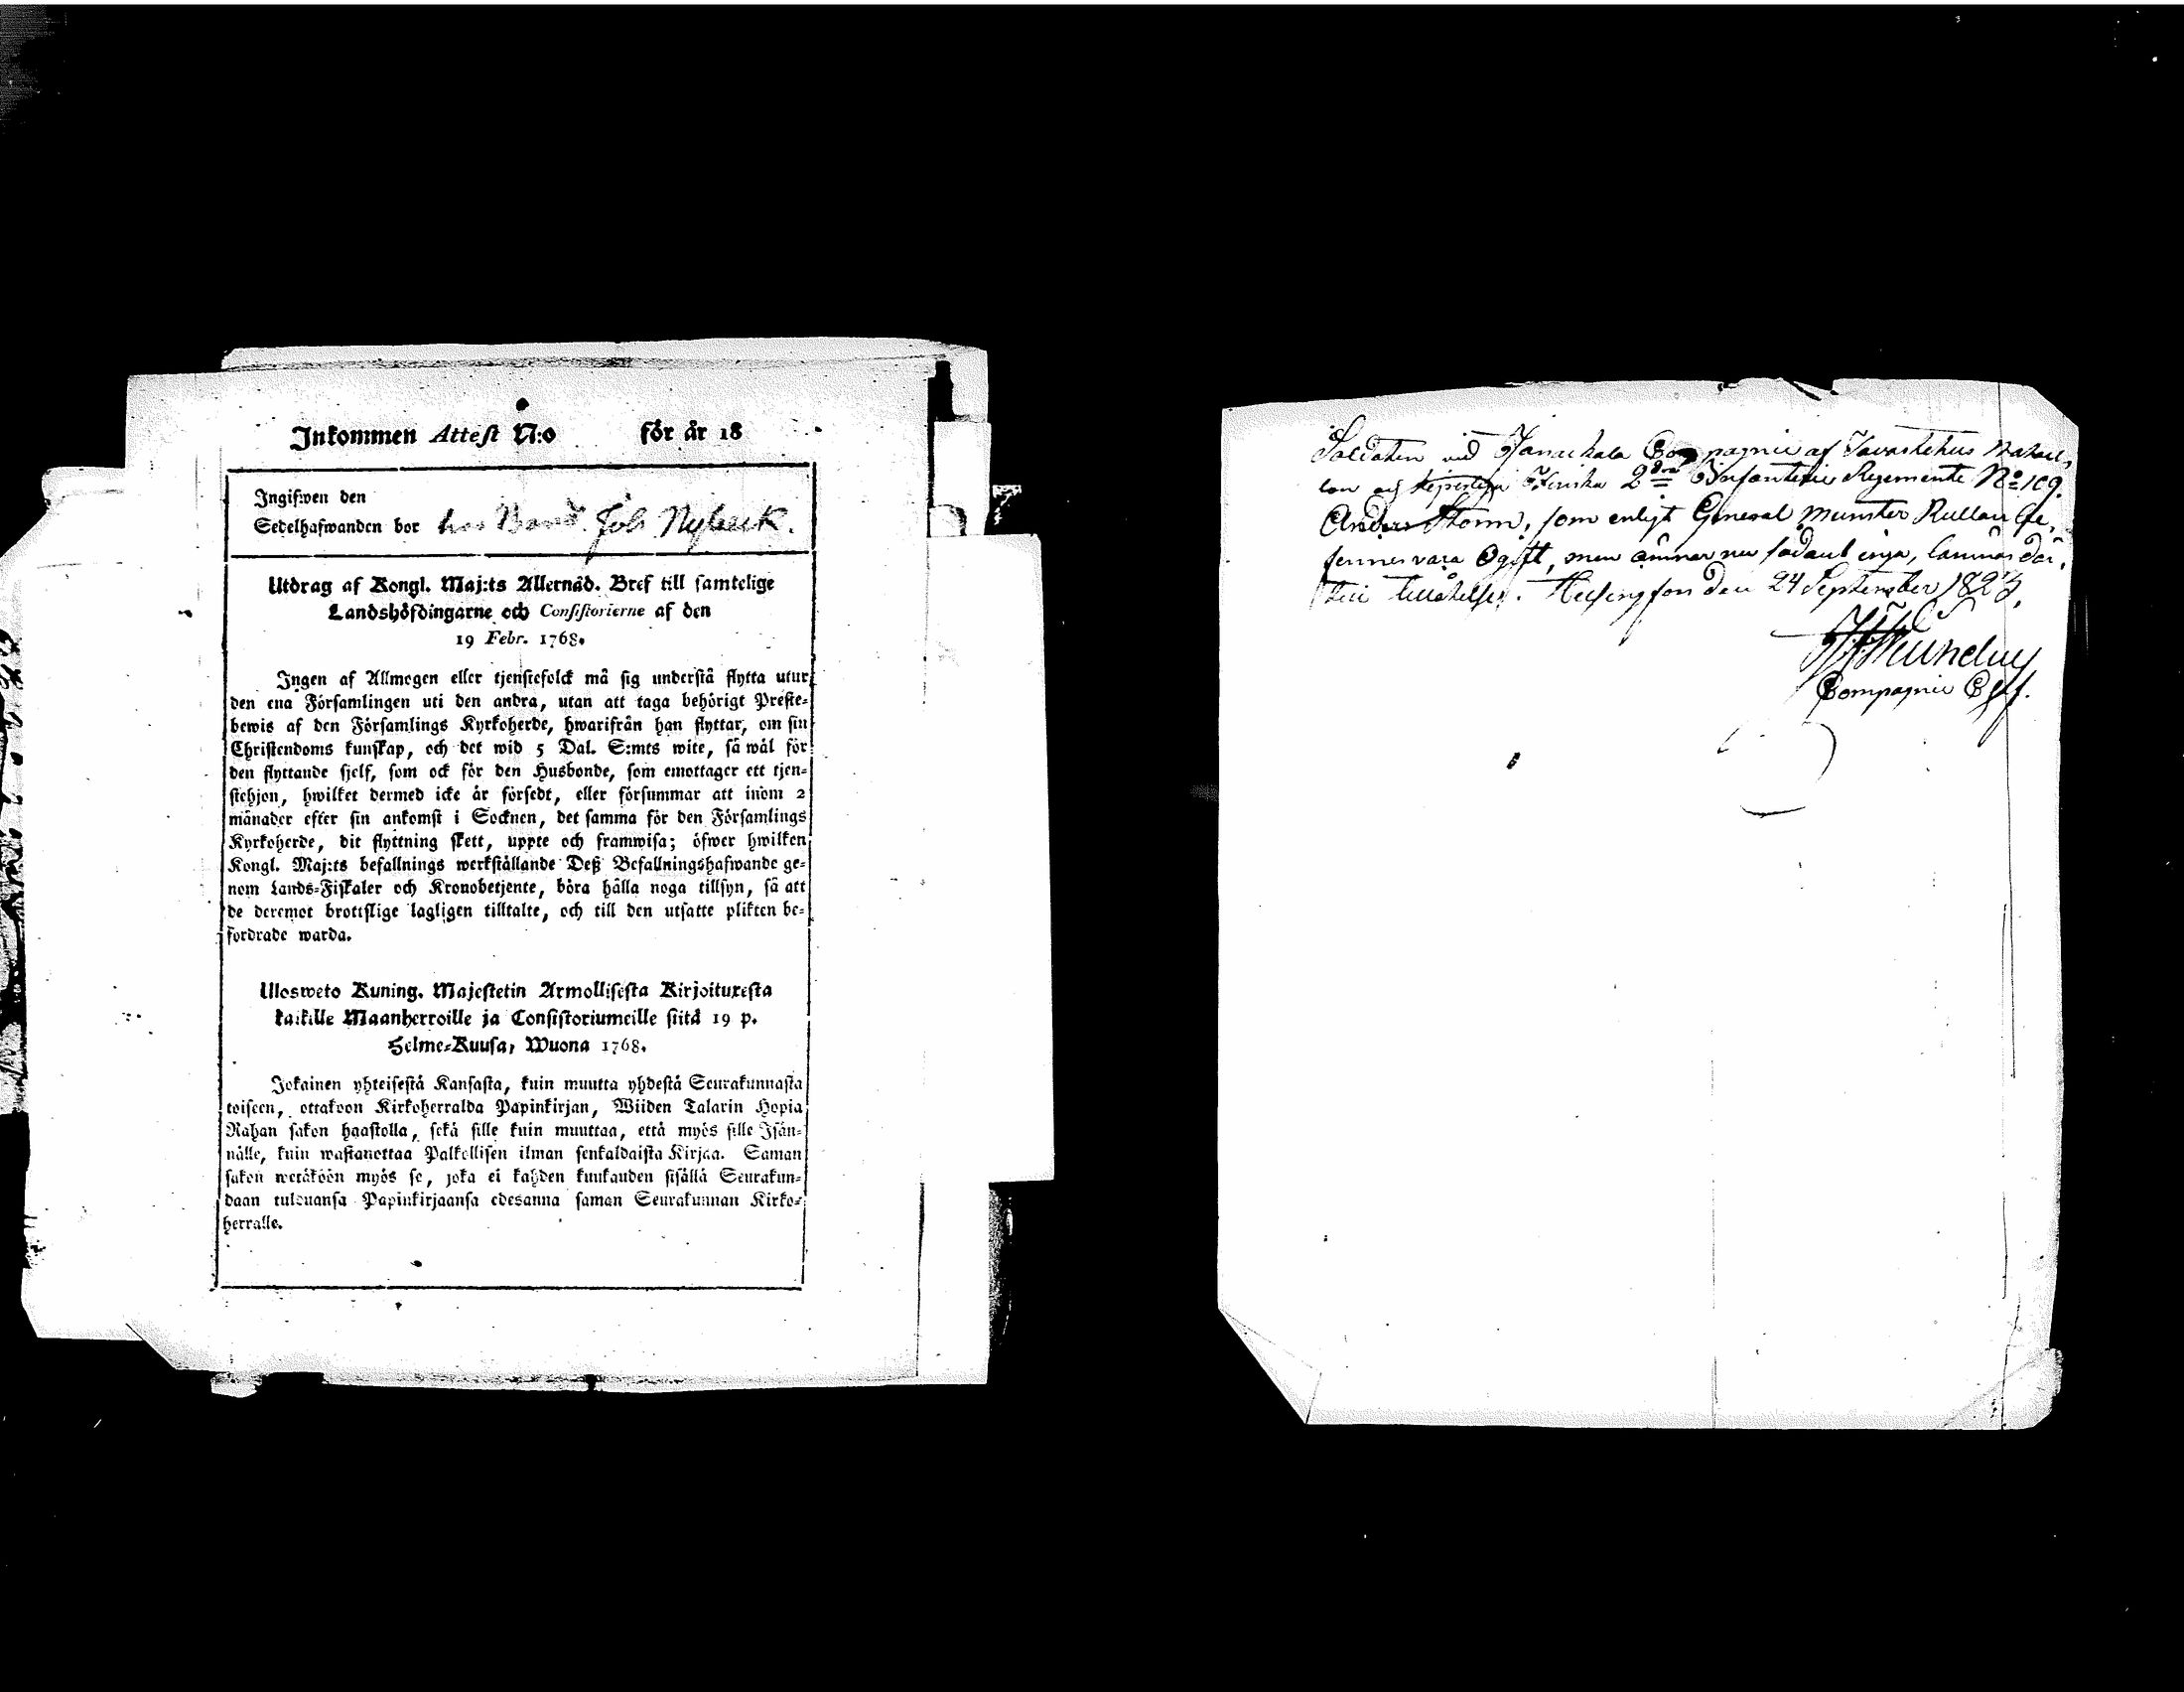 Inkommen Attest N:o för år 18
Ingifwen den
Sedelhafwanden bor hos Bond. Joh. Nybeck.
Utdrag af Kongl. Maj:ts Allernåd. Bref till samtelige
Landshöfdingarne och Consistorierne af den
19 Febr. 1768.
Ingen af Allmogen eller tjenstefolck må sig understå flytta utur
den ena Församlingen uti den andra, utan att taga behörigt Preste-
bewis af den Församlings Kyrkoherde, hwarifrån han flyttar, om sin
Christendoms kunskap, och det wid 5 Dal. S:mts wite, så wäl för
den flyttande sjelf, som ock för den Husbonde, som emottager ett tjen-
stehjon, hwilket dermed icke är försedt, eller försummar att inom 2
månader efter sin ankomst i Socknen, det samma för den Församlings
Kyrkoherde, dit flyttning skett, uppte och framwisa; öfwer hwilken
Kongl. Maj:ts befallnings werkställande Deß Befallningshafwande ge-
nom Lands-Fiskaler och Kronobetjente, böra hålla noga tillsyn, så att
de deremot brottslige lagligen tilltalte, och till den utsatte plikten be-
fordrade warda.
Ulosweto Kuning. Majestetin Armollisesta Kirjoituxesta
kaikille Maanherroille ja Consistoriumeille siitä 19 p.
Helme-Kuusa, Wuona 1768.
Jokainen yhteisestä Kansasta, kuin muutta yhdestä Seurakunnasta
toiseen, ottakoon Kirkoherralda Papinkirjan, Wiiden Talarin Hopia
Rahan sakon haastolla, sekä sille kuin muuttaa, että myös sille Isän-
nälle, kuin wastanottaa Palkollisen ilman senkaldaista Kirjaa. Saman
sakon wetäköön myös se, joka ei kahden kuukauden sisällä Seurakun-
daan tulouansa Papinkirjaansa edesanna saman Seurakunnan Kirko-
herralle.
Soldaten vid Janackala Compagnie af Tavastehus Batail-
lon och Kejserliga Finska 2dra Infanterie Regemente No 109.
Anders Storm, som enligt General Munster Rullan be-
finnes vara Ogift, men ämnar nu sådant ingå, lämnas där-
till tillåtelse. Helsingfors den 24 September 1823.
Compagnie Chef.